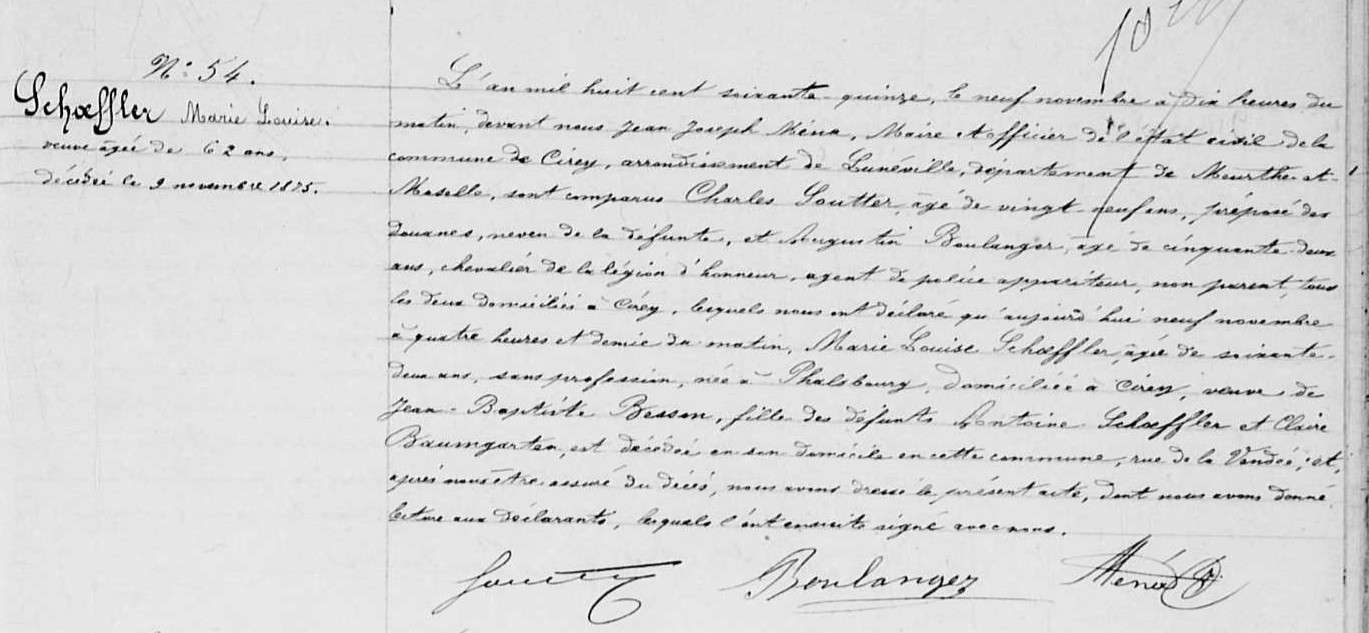 N° 54.
Schœffler Marie Louise.
veuve âgée de 62 ans,
décédée le 9 novembre 1875.
L'an mil huit cent soixante-quinze, le neuf novembre à dix heures du
matin, devant nous Jean Joseph Ména, Maire et officier de l'état civil de la
commune de Cirey, arrondissement de Lunéville, département de Meurthe-et-
Moselle, sont comparus Charles Soutter, âgé de vingt-neuf ans, préposé des
douanes, neveu de la défunte, et Augustin Boulanger, âgé de cinquante-deux
ans, chevalier de la légion d'honneur, agent de police appariteur, non parent, tous
les deux domiciliés à Cirey, lesquels nous ont déclaré qu'aujourd'hui neuf novembre
à quatre heures et demie du matin, Marie Louise Schœffler, âgée de soixante-
deux ans, sans profession, née à Phalsbourg, domiciliée à Cirey, veuve de
Jean-Baptiste Besson, fille des défunts Antoine Schœffler et Claire
Baumgarten, est décédée en son domicile en cette commune, rue de la Vendée; et,
après nous être assuré du décès, nous avons dressé le présent acte, dont nous avons donné
lecture aux déclarants, lesquels l'ont ensuite signé avec nous.
Soutter Boulanger Ména